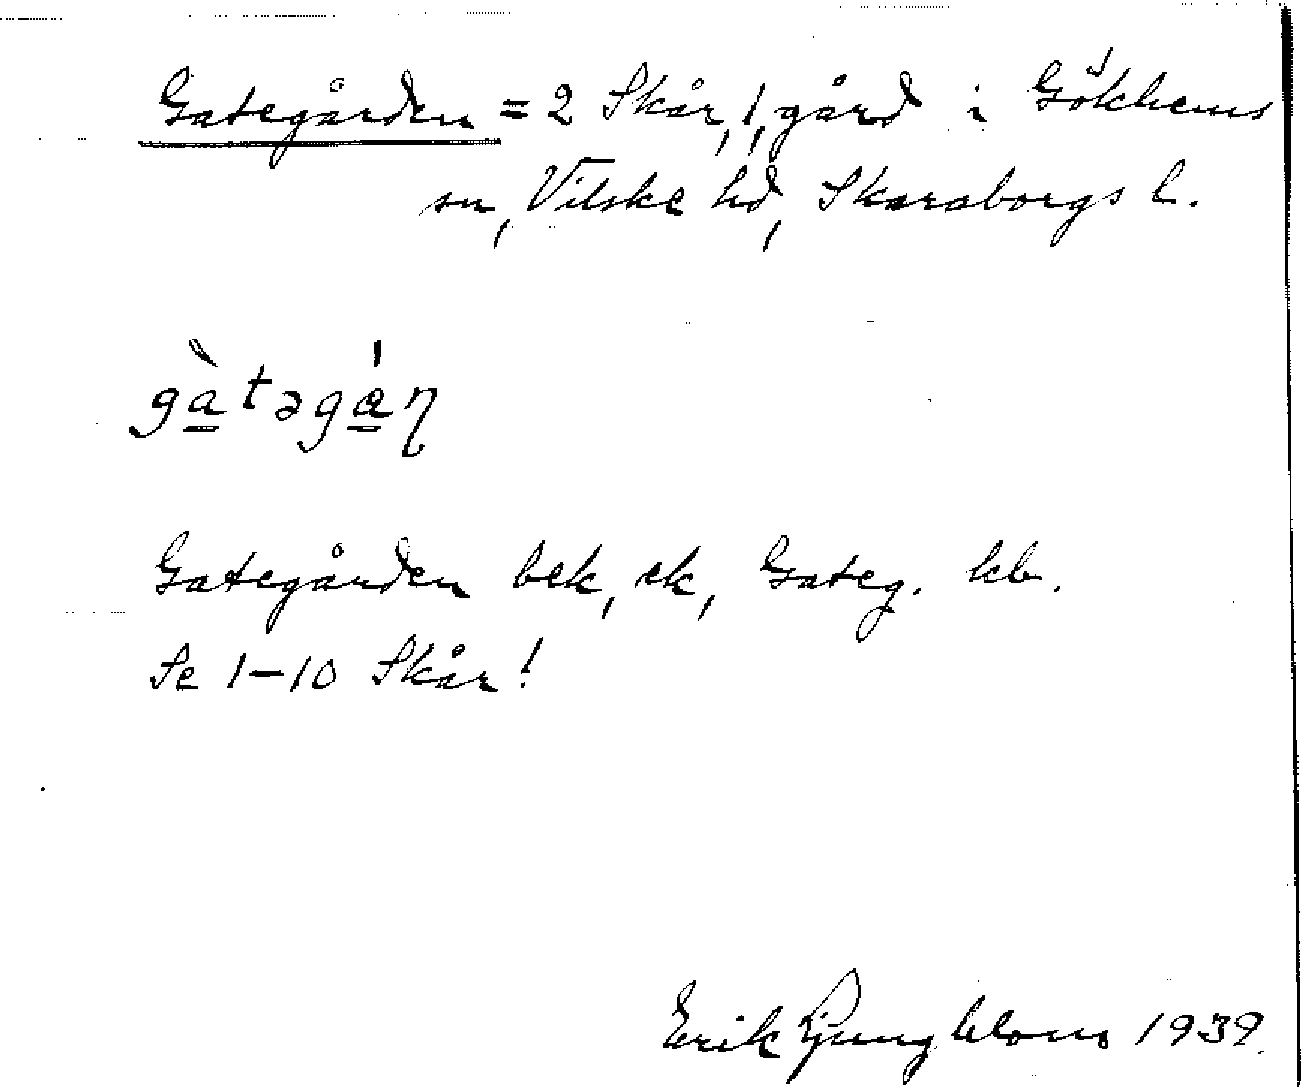 Gategården = 2 Skår, 1, gård i Gökhems
sn, Vilske hd, Skaraborgs l.
gàtəgán
Gategården bek, ek, Gateg. kb.
Se 1–10 Skår!
Erik Ljungblom 1939.